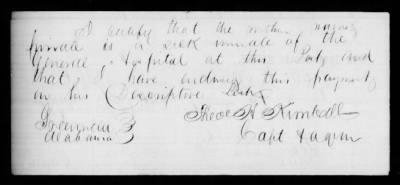 I certify that the within named
private is a sick inmate of the
General Hospital at this Post and
that I have endorsed this payment
on his Descriptive List
Theo H Kimball
Capt
Alabama